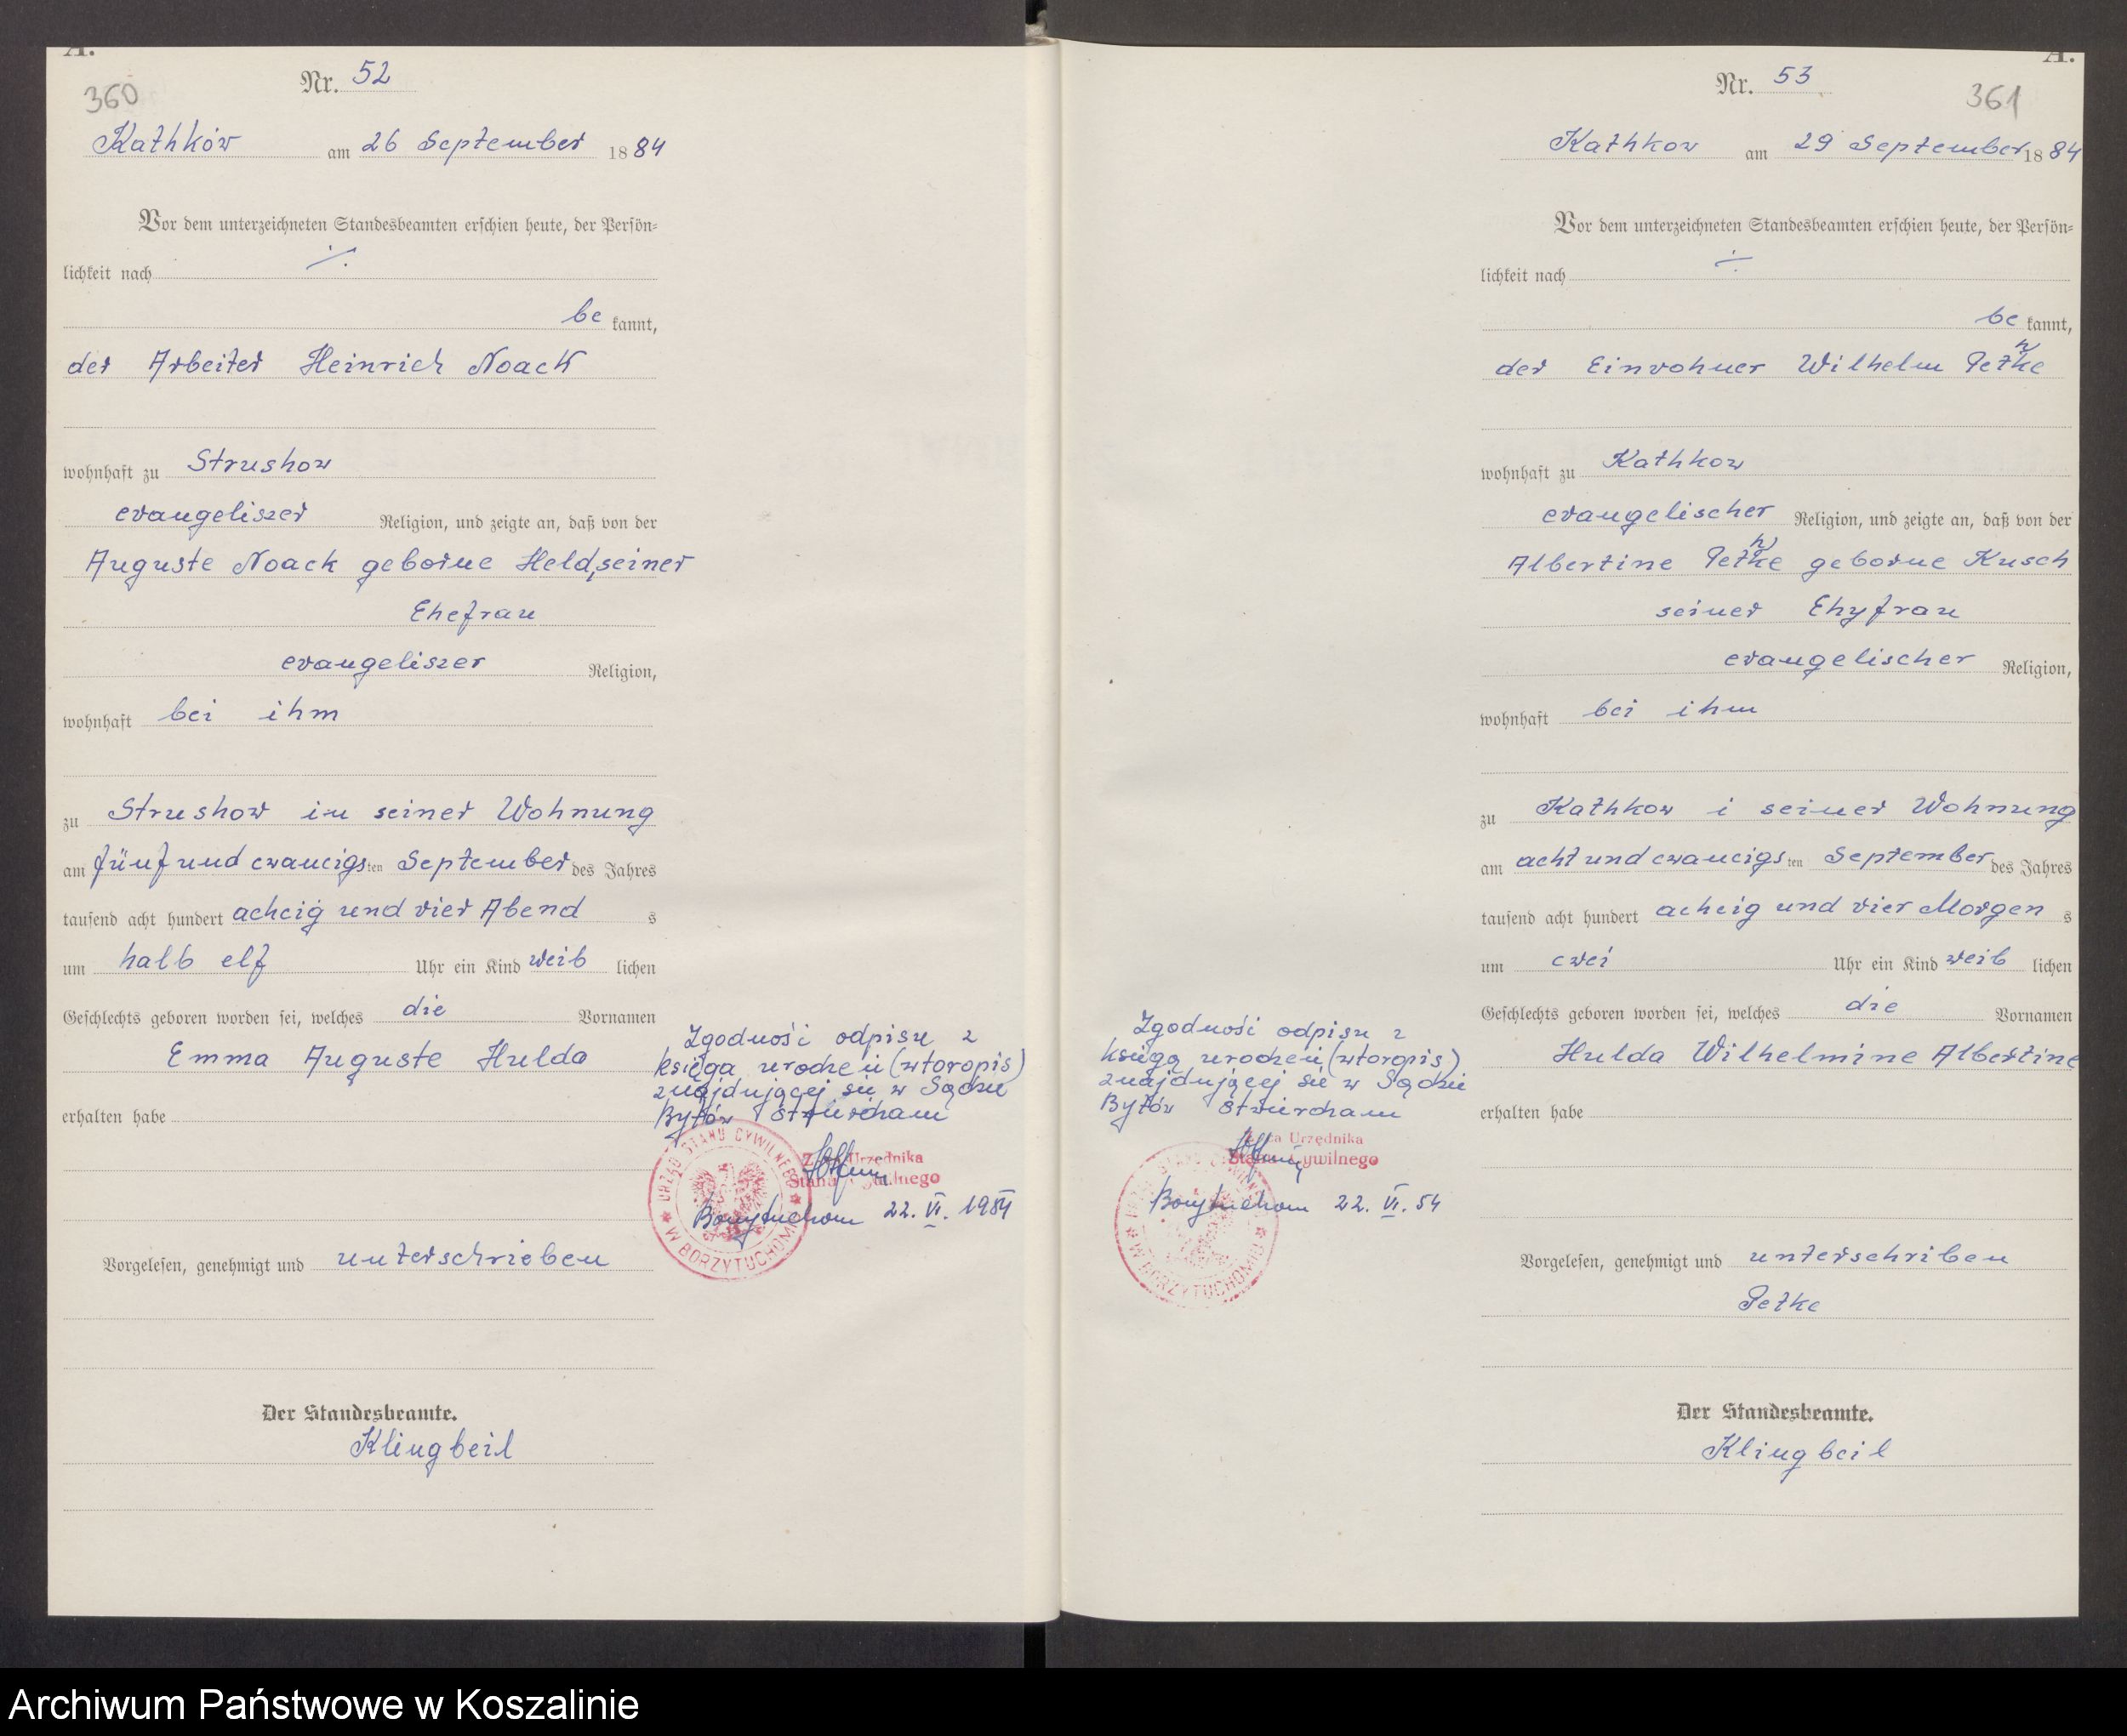 A.
360
Nr. 52
Kathków am 26 September 1884
Vor dem unterzeichneten Standesbeamten erschien heute, der Persön=
lichkeit nach ·/·
be kannt,
der Arbeiter Heinrich Noack
wohnhaft zu Strushow
evangeliszer Religion, und zeigte an, daß von der
Auguste Noack geborne Held, seiner
Ehefrau
evangeliszer Religion,
wohnhaft bei ihm
zu Strushow in seiner Wohnung
am fünf und cwancigsten September des Jahres
tausend acht hundert achcig und vier Abend s
um halb elf Uhr ein Kind weib lichen
Geschlechts geboren worden sei, welches die Vornamen
Emma Auguste Hulda
erhalten habe
Zgodność odpisu z
księga urodzeń (wtoropis)
znajdującej się w Sądzie
Bytów stwierdzam
Urzędnika
Stanu Cywilnego
Borzytuchom 22. VI. 1954
URZĄD STANU CYWILNEGO
W BORZYTUCHOMIU
Vorgelesen, genehmigt und unterschrieben
Der Standesbeamte.
Klingbeil
A.
361
Nr. 53
Kathkow am 29 September 1884
Vor dem unterzeichneten Standesbeamten erschien heute, der Persön=
lichkeit nach ÷
be kannt,
der Einwohner Wilhelm Petke
h
wohnhaft zu Kathkow
evangelischer Religion, und zeigte an, daß von der
Albertine Petke geborne Kusch
h
seiner Ehyfrau
evangelischer Religion,
wohnhaft bei ihm
zu Kathkow i seiner Wohnung
am acht und cwancigsten September des Jahres
tausend acht hundert achcig und vier Morgen s
um cwei Uhr ein Kind weib lichen
Geschlechts geboren worden sei, welches die Vornamen
Hulda Wilhelmine Albertine
erhalten habe
Zgodność odpisu z
księgą urodzeń (wtoropis)
znajdującej się w Sądzie
Bytów stwierdzam
Urzędnika
Stanu Cywilnego
Borzytuchom 22. VI. 54
W BORZYTUCHOMIU
Vorgelesen, genehmigt und unterschriben
Petke
Der Standesbeamte.
Klingbeil
Archiwum Państwowe w Koszalinie